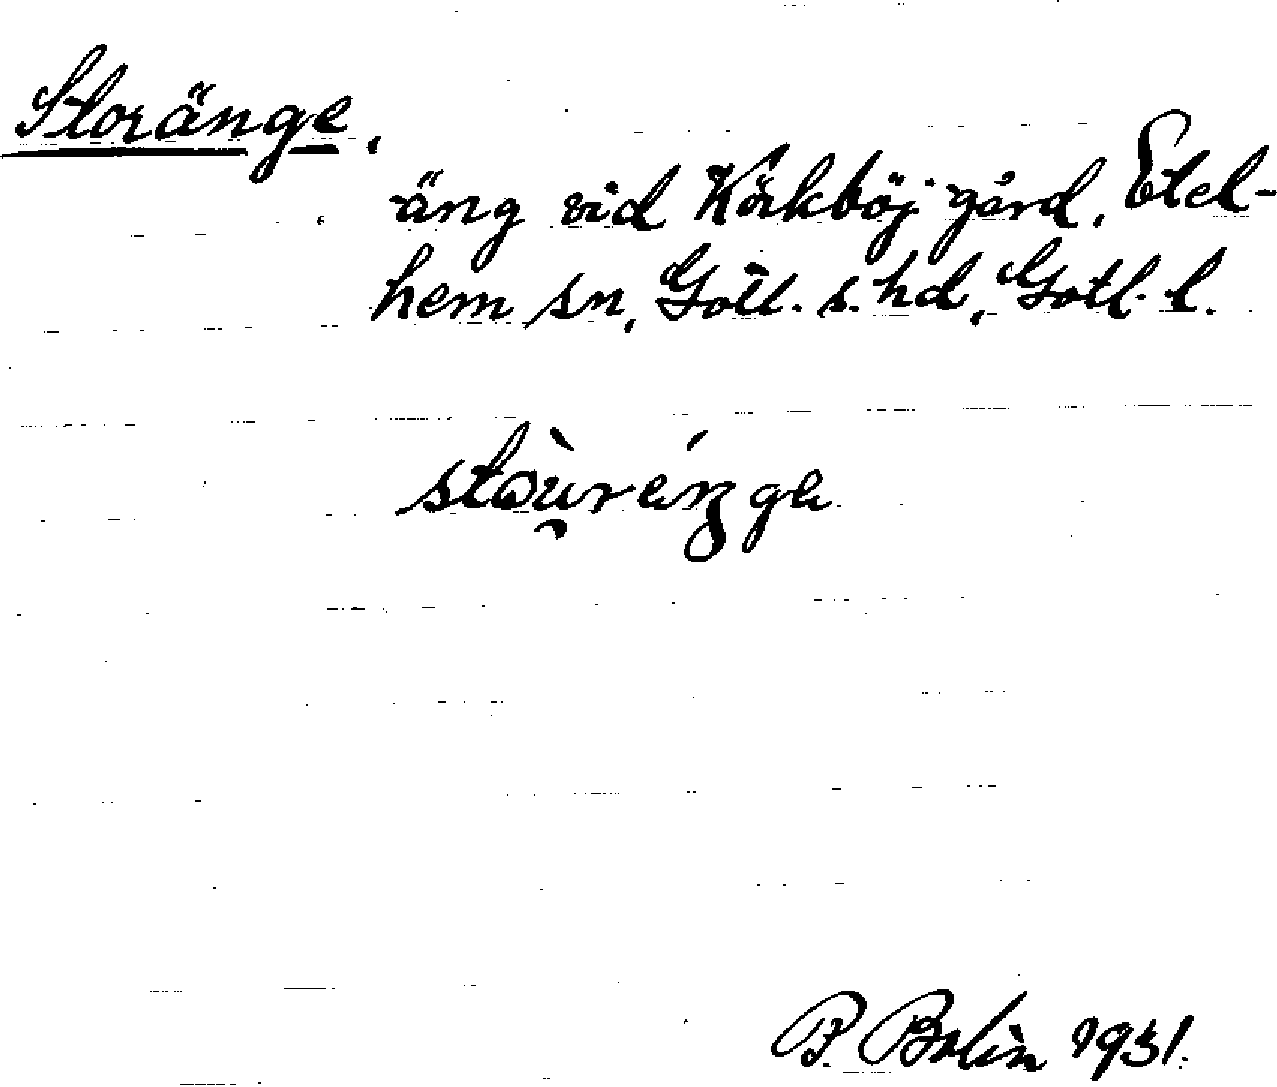 Storänge,
äng vid Käkböj gård, Etel-
hem sn, Gotl. s. hd, Gotl. l.
P. Bolin 1931.